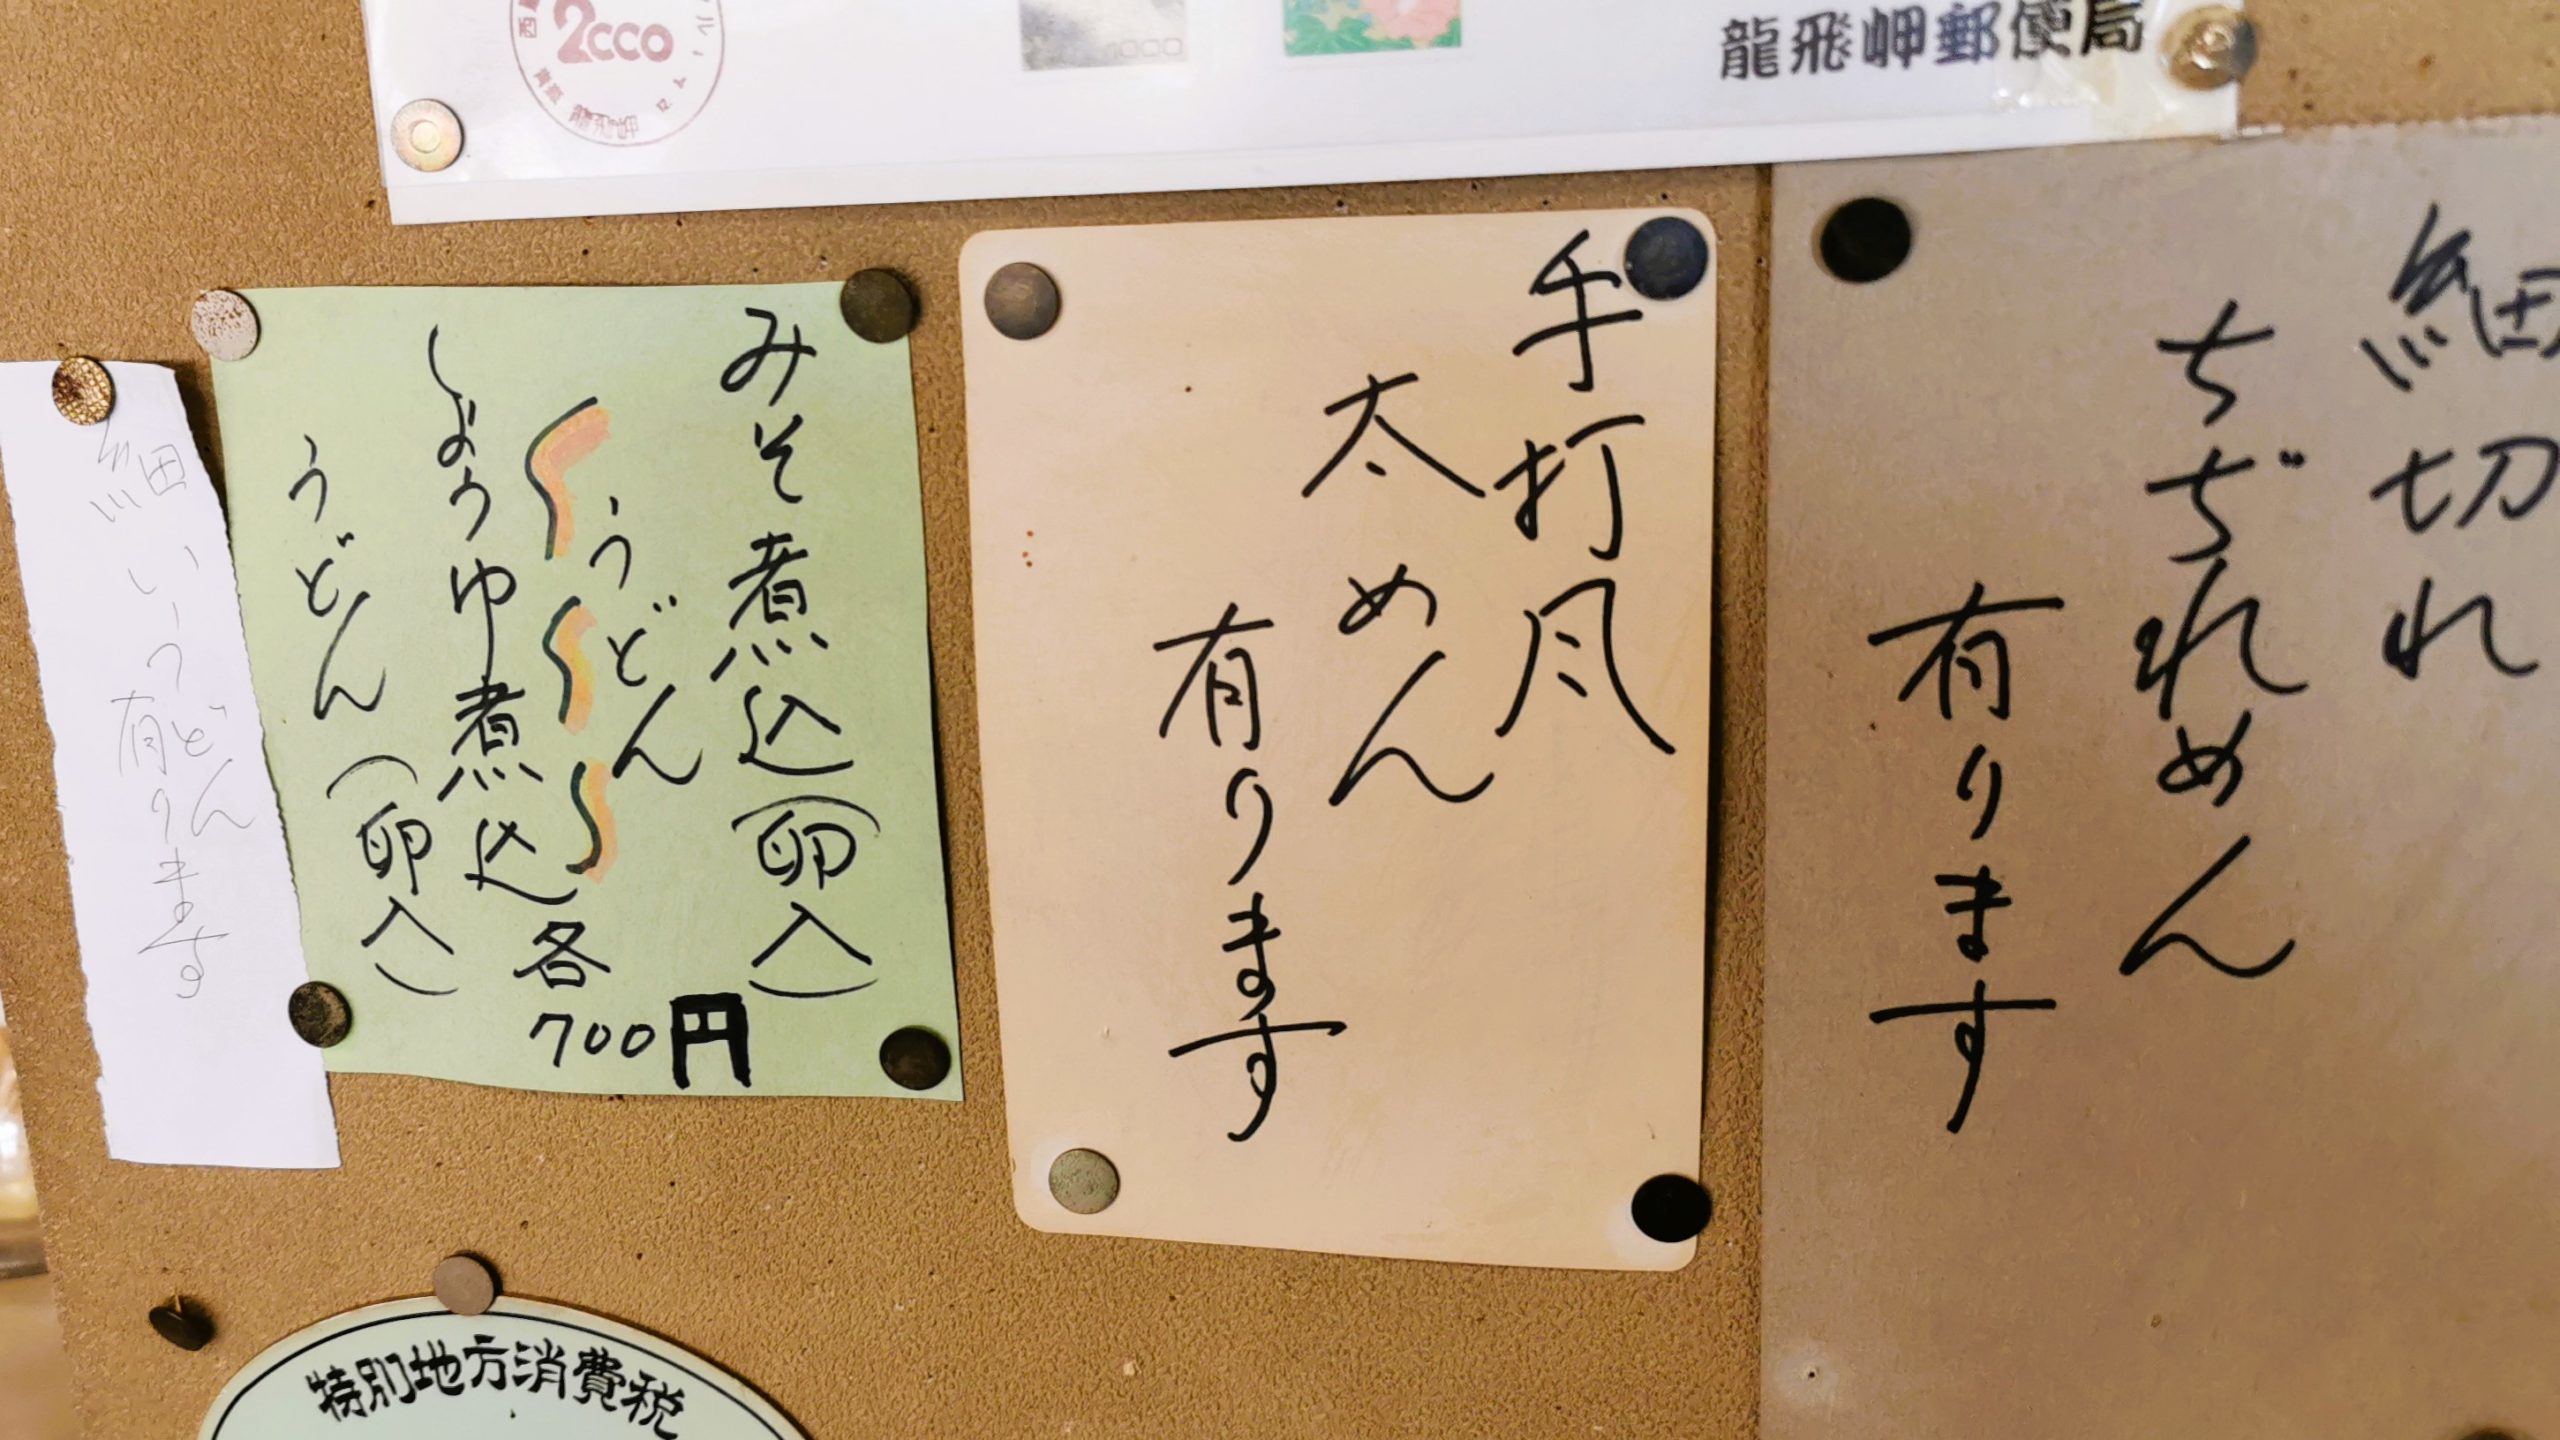 2000
龍飛岬
12.
龍飛岬郵便局
細切れ
ちぢれめん
有ります
手打風
太めん
有ります
みそ煮込(卵入)
うどん
しょうゆ煮込
うどん(卵入)
各
700円
細いうどん
有ります
特別地方消費税